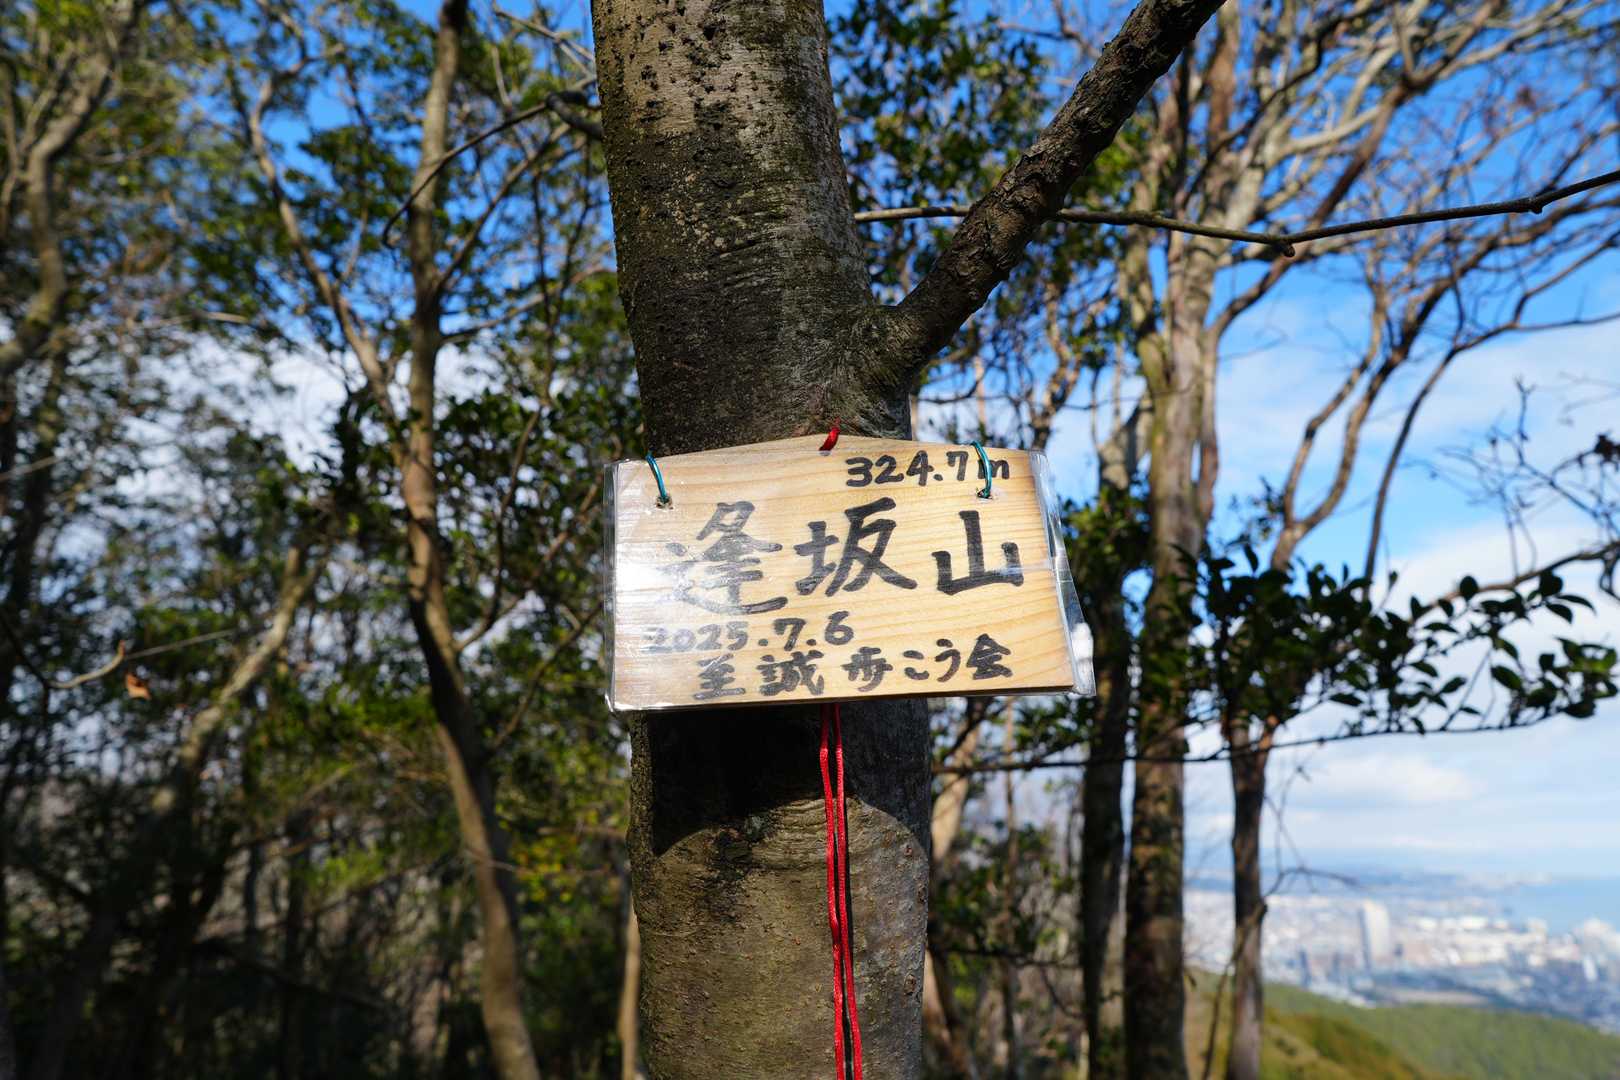 324.7m
逢坂山
2025.7.6
至誠歩こう会